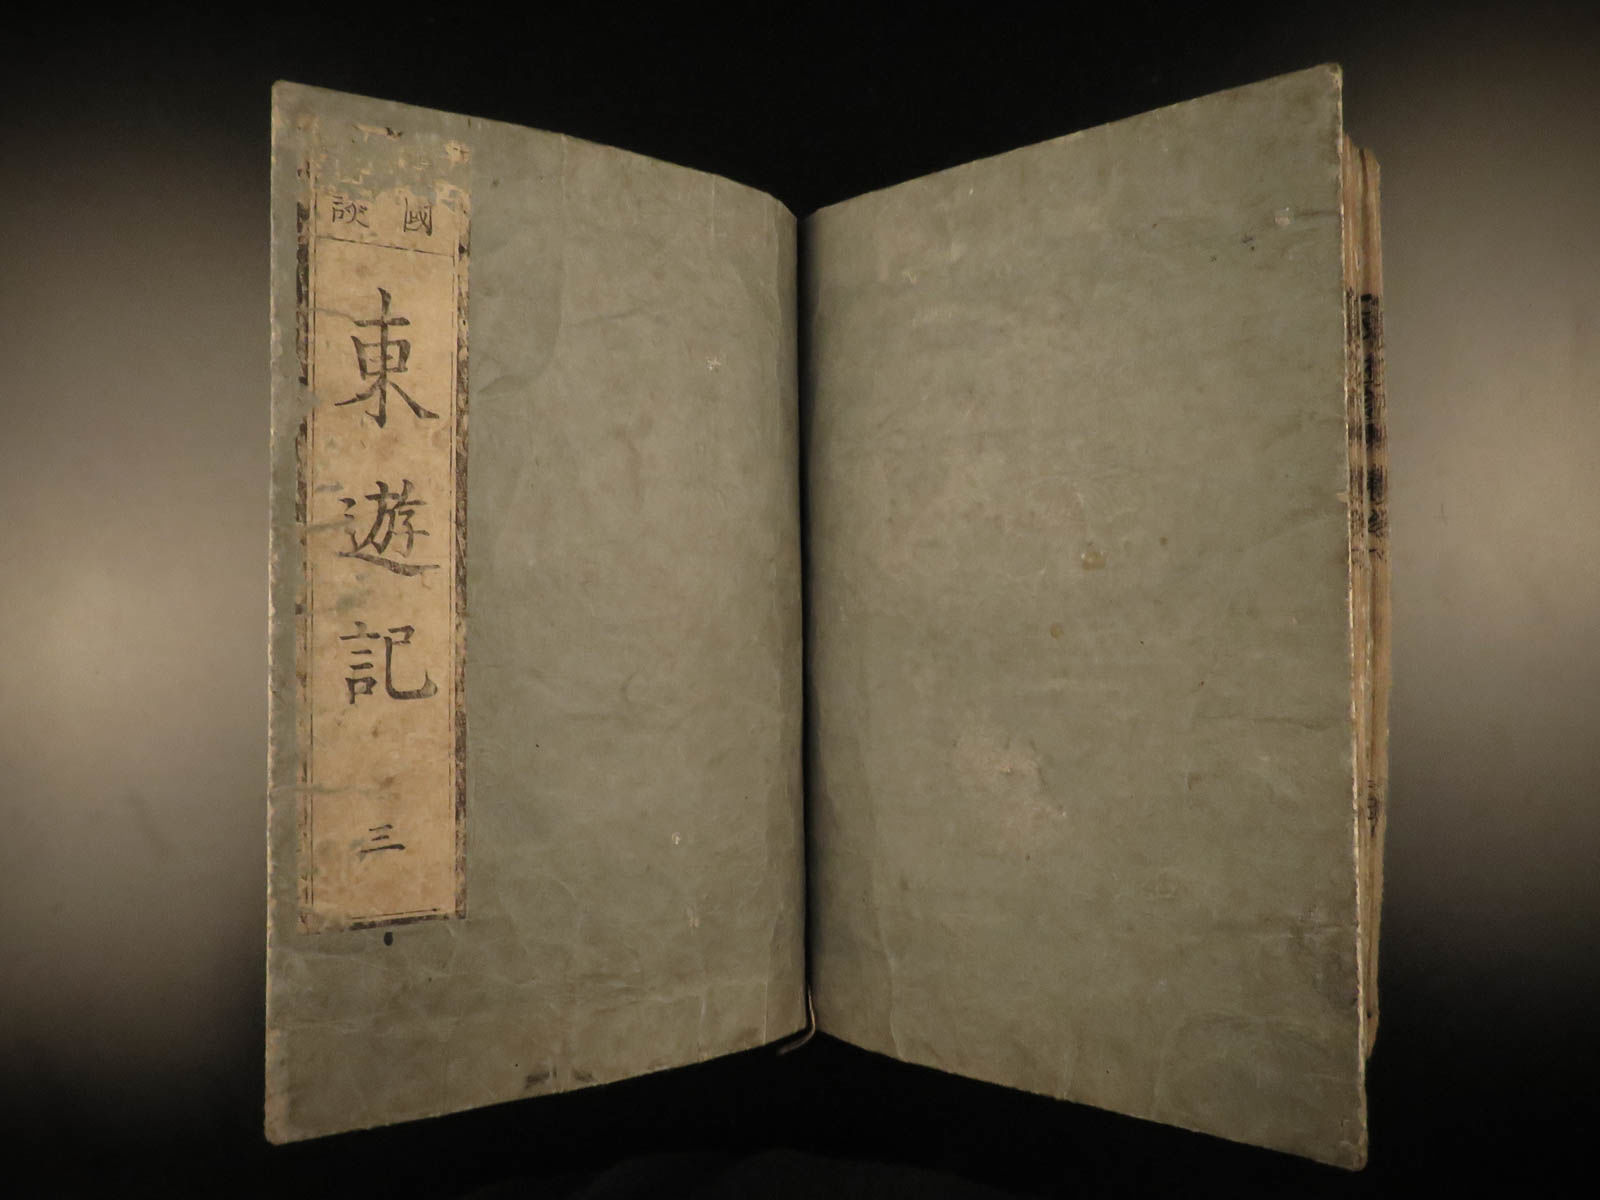 國談
東遊記
三